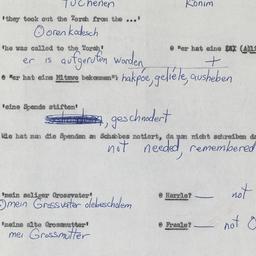 Tuchenen Konim
'they took out the Torah from the ...'
Ooren kodesch
'he was called to the Torah' @ "er hat eine
er is aufgerufen worden +
@ "er hat eine Mitzwe bekommen": hakpoe, geliele, ausheben
'eine Spende stiften'
geschnodert
Wie hat man die Spenden am Schabbes notiert, da man nicht schreiben
not needed, remembered
'mein seliger Grossvater' @ Harrle? — not
mein Grossvater olebescholem
'meine alte Grossmutter' @ Fraale? — not
mei Grossmutter